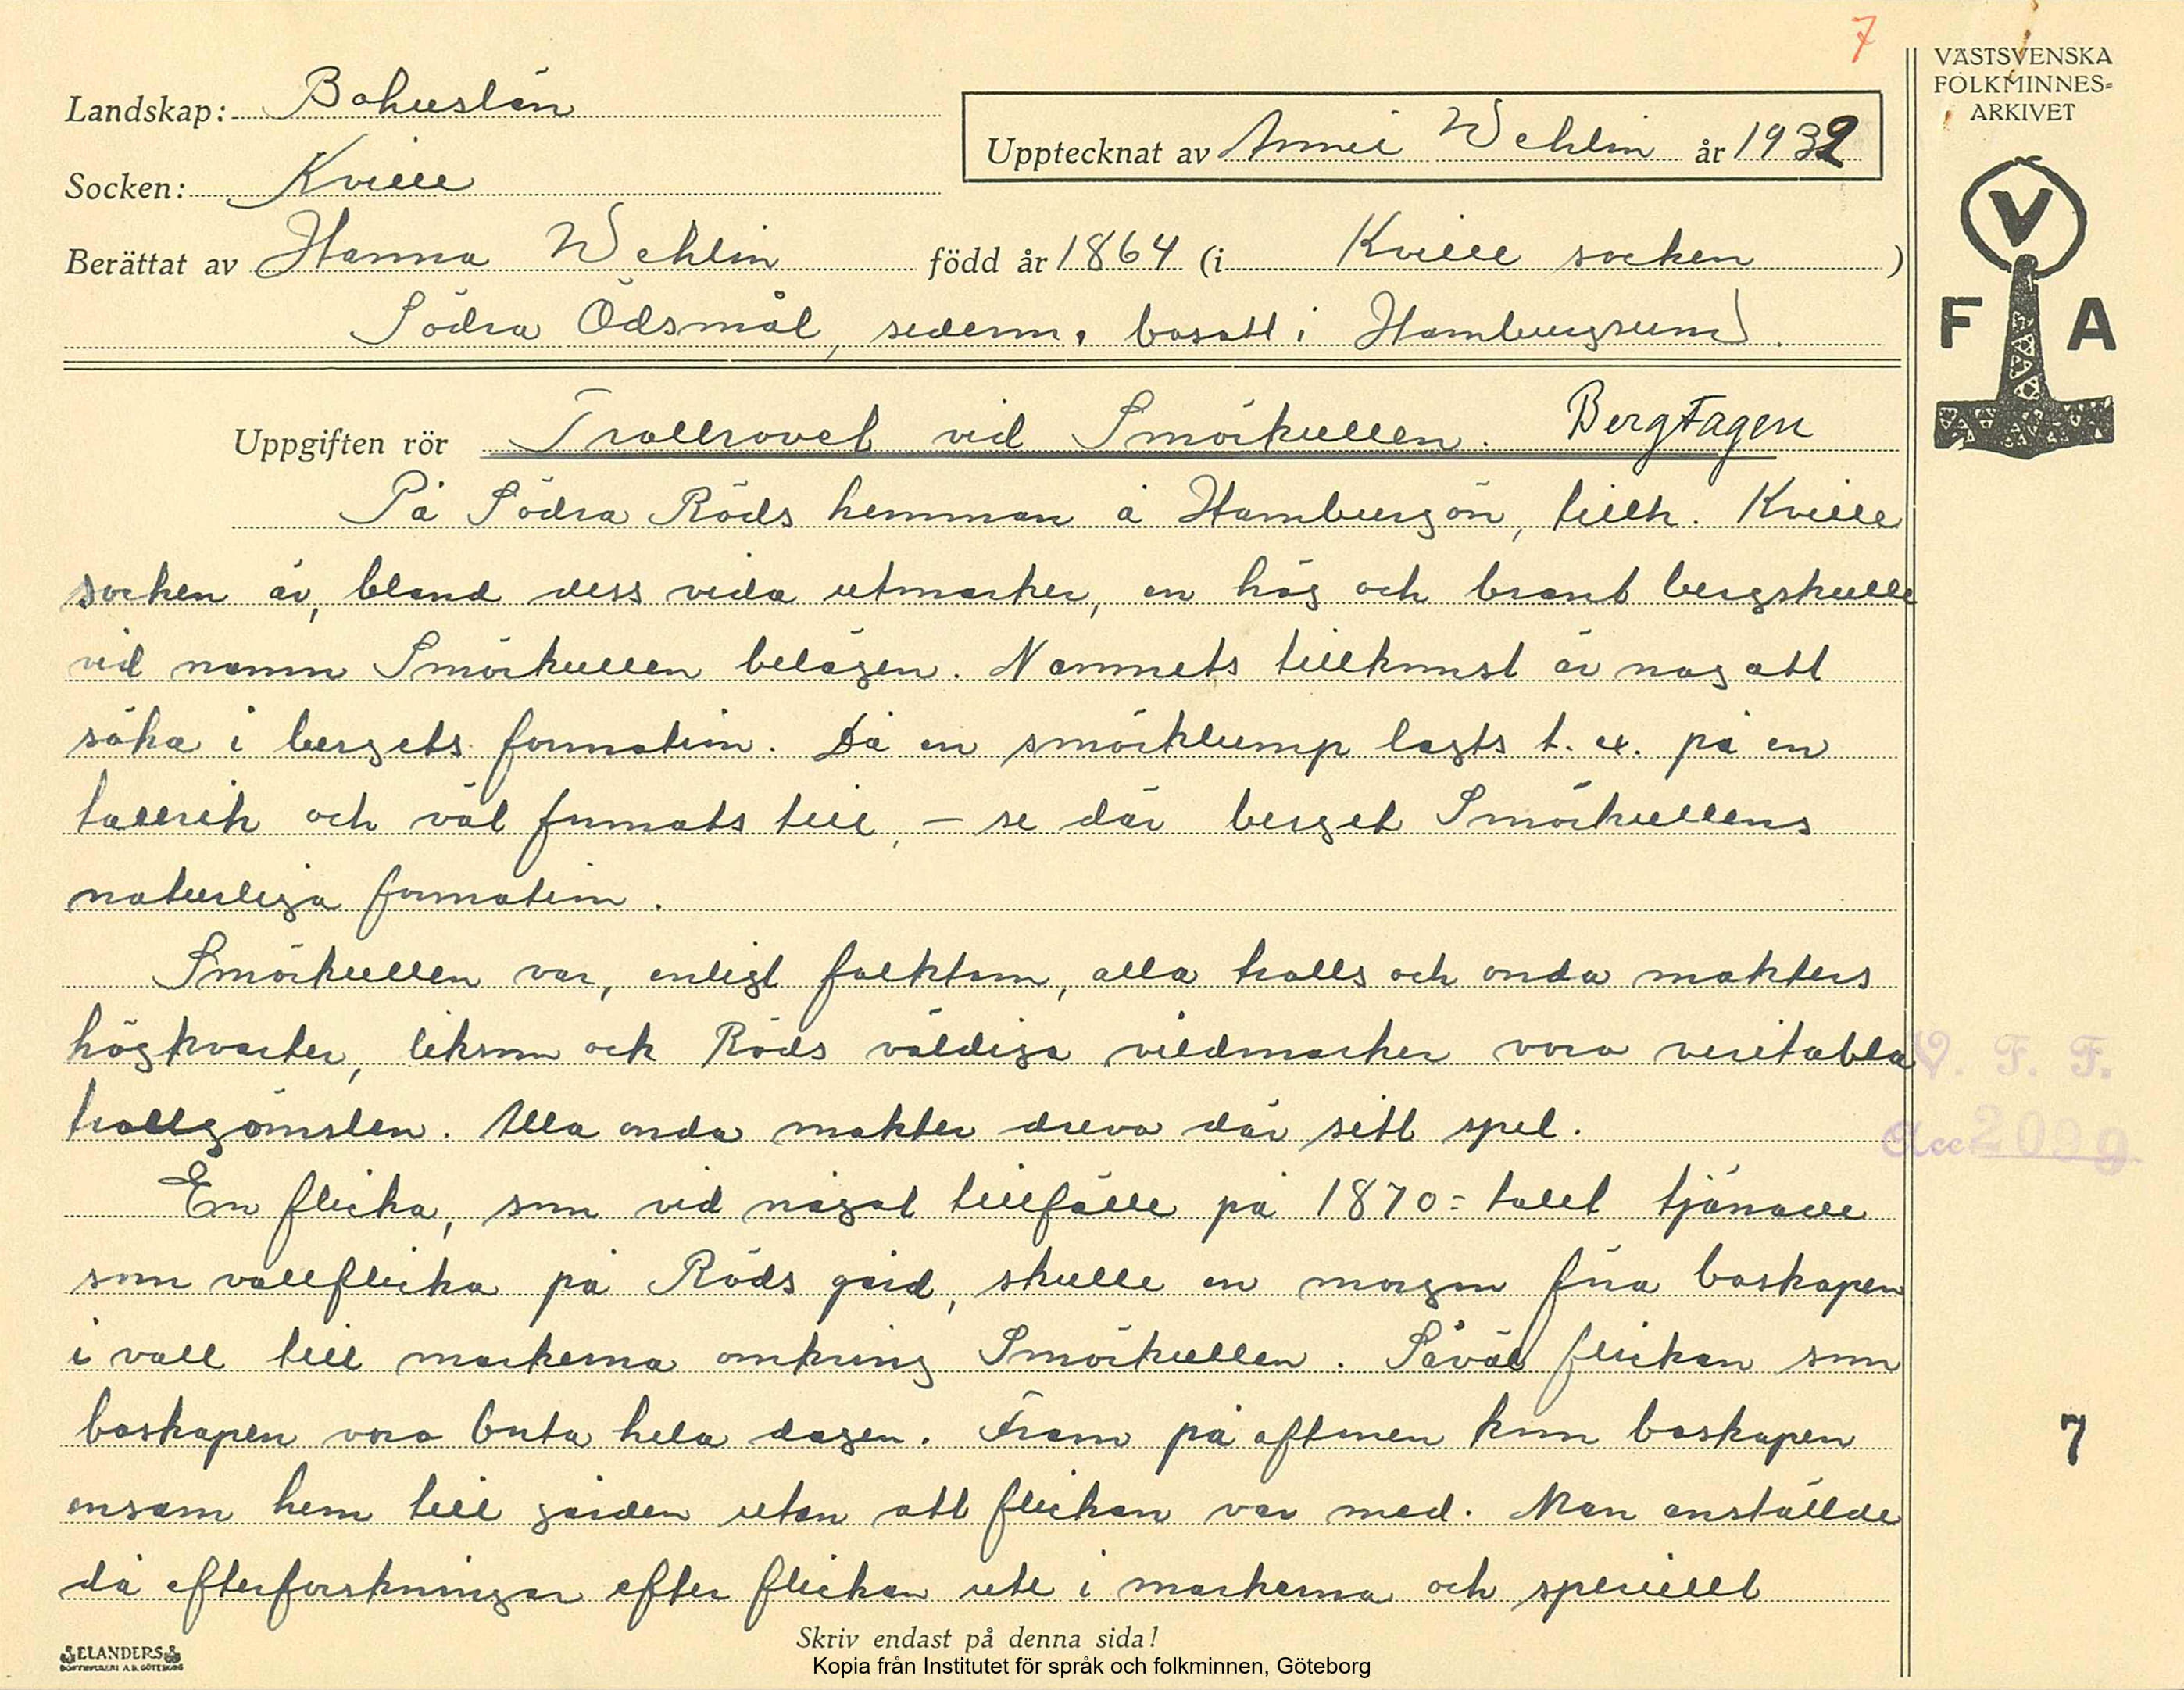 7
VÄSTSVENSKA
FOLKMINNES-
ARKIVET
Landskap: Bohuslän
Upptecknat av Annie Wehlin år 1932
Socken: Kville
Berättat av Hanna Wehlin född år 1864 (i Kville socken)
Södra Ödsmål, sederm. bosatt i Hamburgsund.
V
F A
Uppgiften rör Trallrovet vid Smörkullen. Bergtagen
På Södra Röds hemman å Hamburgön, tillh. Kville
socken är, bland dess vida utmarker, en hög och brant bergskulle
vid namn Smörkullen belägen. Namnets tillkomst är nog att
söka i bergets formation. Då en smörklump lagts t. ex. på en
tallrik och väl formats till, – se där berget Smörkullens
naturliga formation.
Smörkullen var, enligt folktron, alla trolls och onda makters
högkvarter, liksom ock Röds väldiga vildmarker voro veritabla
trollgömslen. Alla onda makter drevo där sitt spel.
V. F. F.
Acc 2099
En flicka, som vid något tillfälle på 1870-talet tjänade
som vallflicka på Röds gård, skulle en morgon föra boskapen
i vall till markerna omkring Smörkullen. Såväl flickan som
boskapen voro borta hela dagen. Fram på aftonen kom boskapen
7
ensam hem till gården utan att flickan var med. Man anställde
då efterforskningar efter flickan ute i markerna och speciellt
Skriv endast på denna sida!
ELANDERS
BOKTRYCKERI A.B. GÖTEBORG
Kopia från Institutet för språk och folkminnen, Göteborg